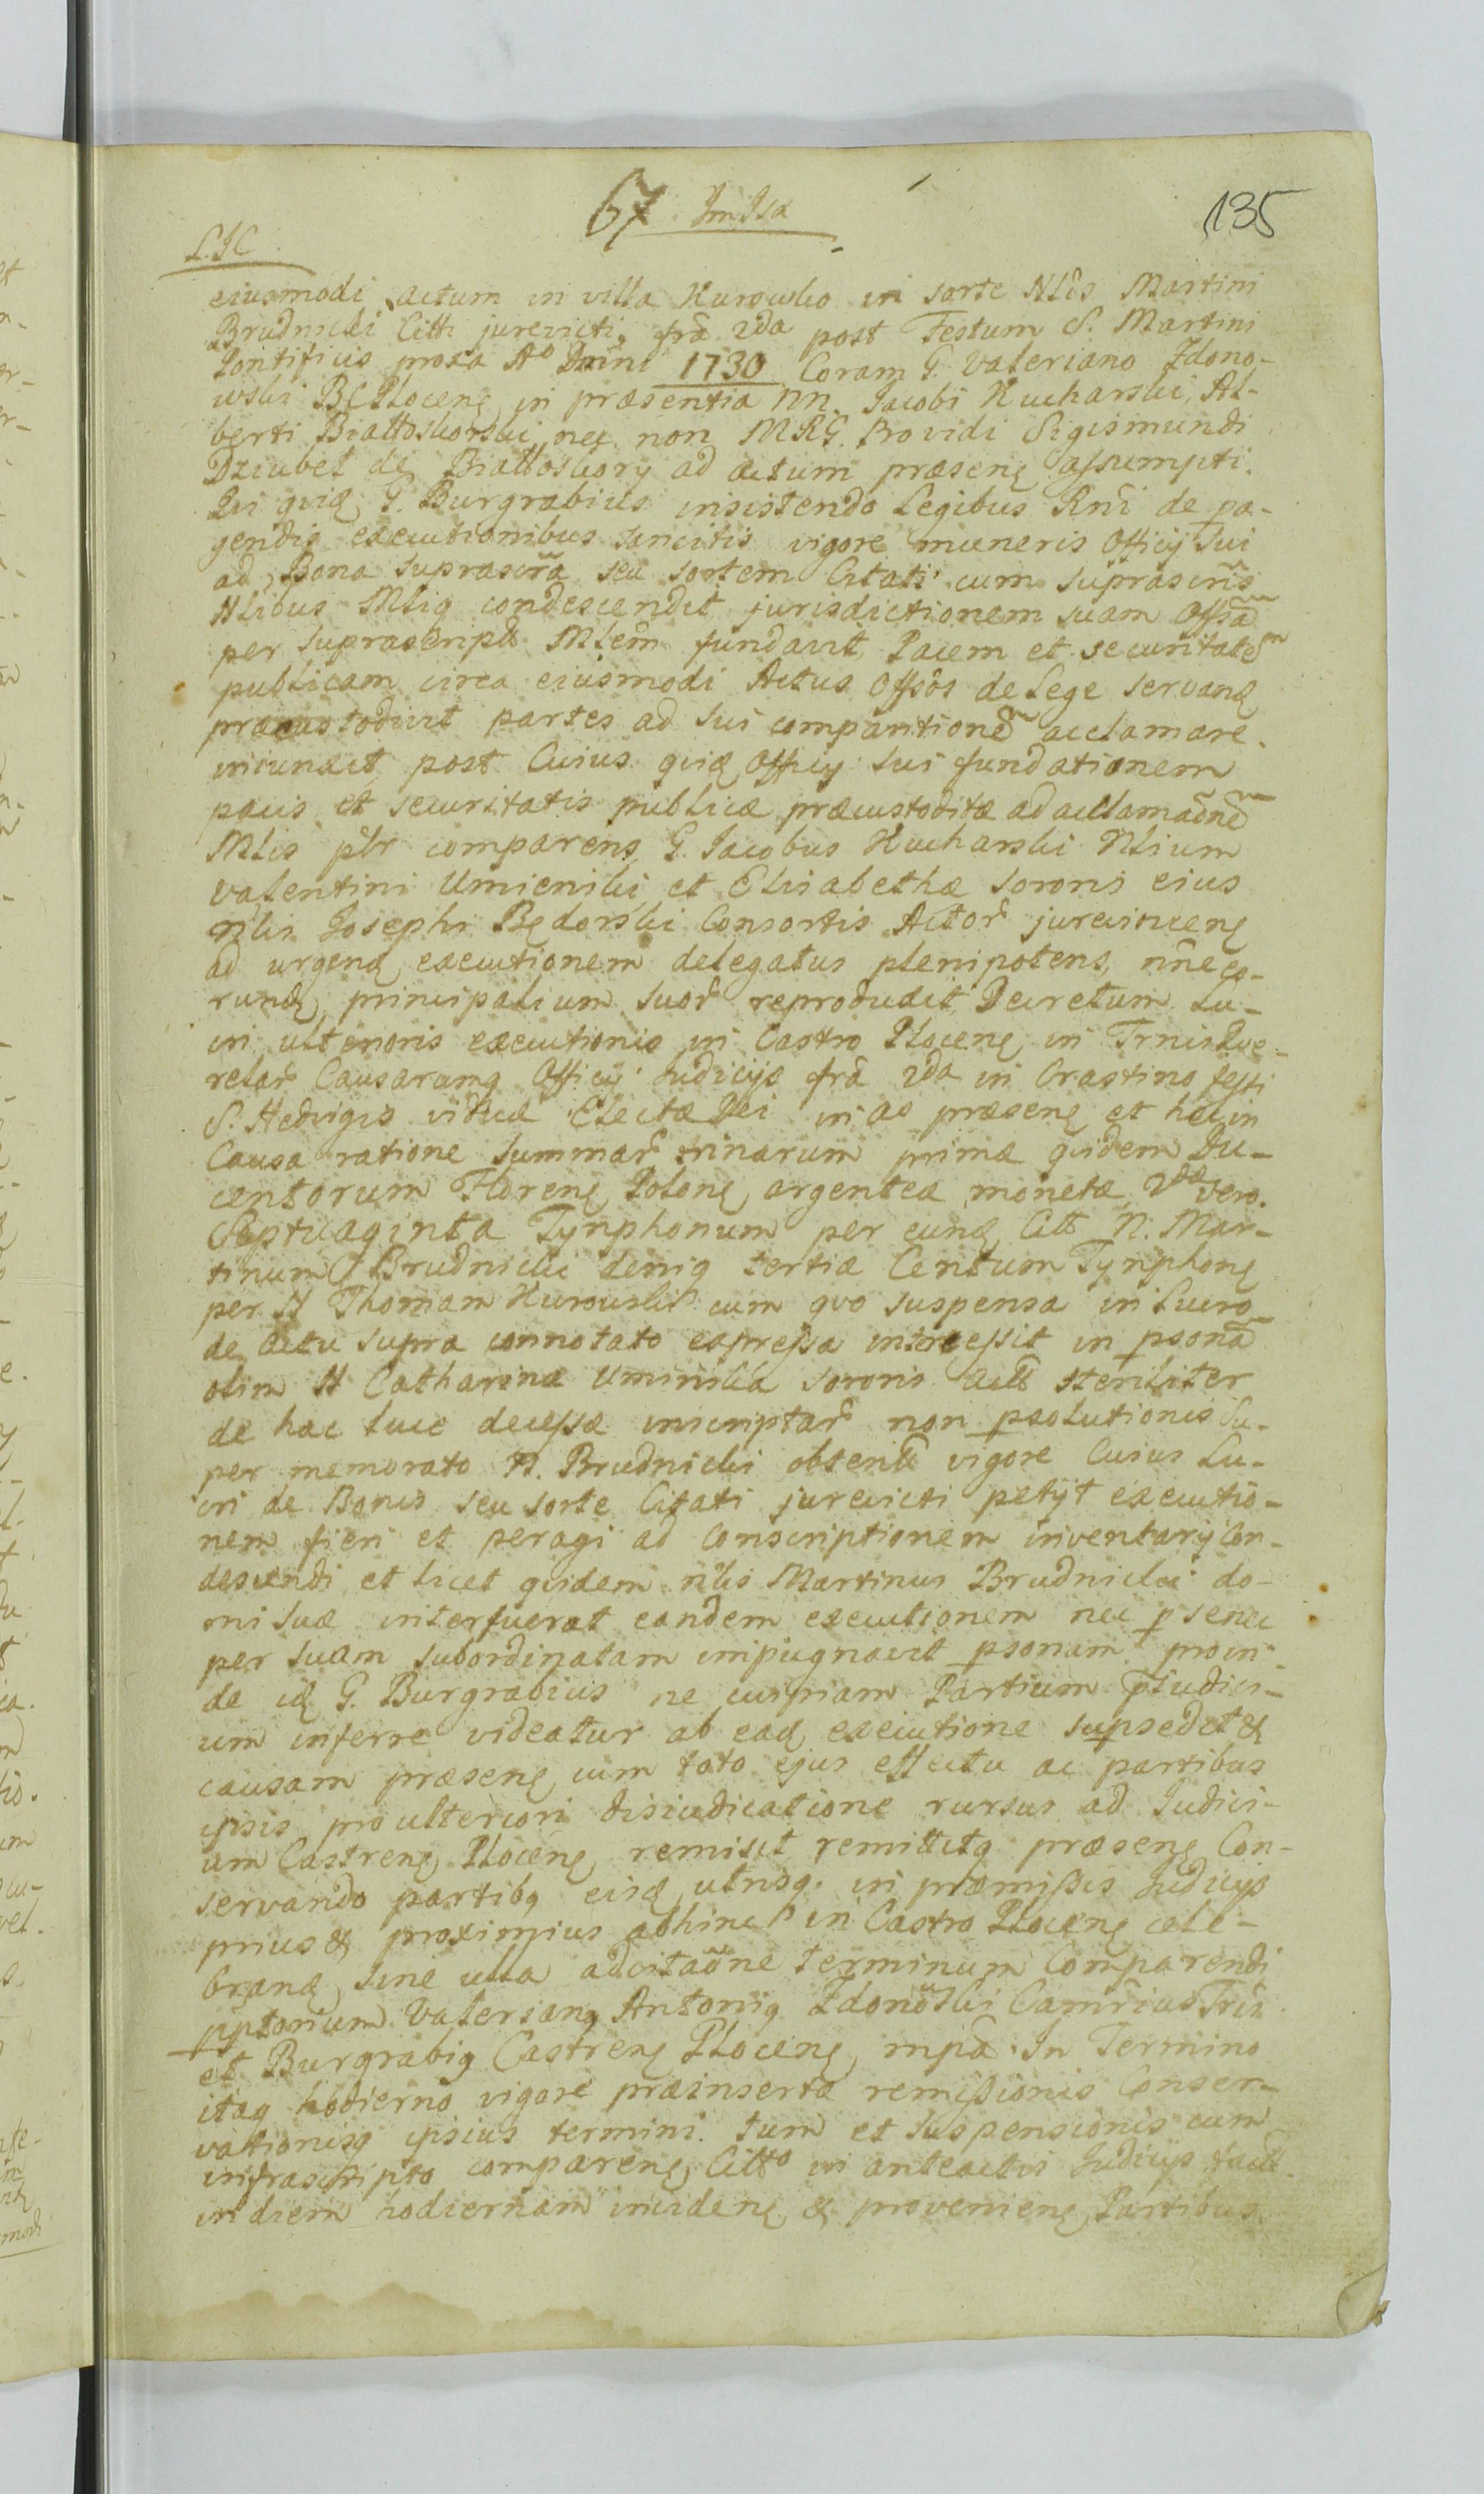 67 ImIsa
135
L.IC
eiusmodi actum in villa Kurowko in sorte Nlis Martini
Brudnicki Citti jurevicti, fra 2da post Festum S. Martini
Pontificis proxa Ao Dnini 1730 Coram G. Valeriano Zdono-
wski BCPlocenę in præsentia nn. Jacobi Kucharski, Al-
berti Białłoskorski nec non MRG. Providi Sigismundi
Dziubel de Białłoskory ad actum præsenę assumpti.
Qui quidę G. Burgrabius insistendo Legibus Rni de pa-
gendis executionibus sancitis vigore muneris Officÿ sui
ad Bona suprascra seu sortem Citati cum suprascris
Nlibus Mliq condescendit jurisdictionem suam Offsa
per suprascript Mlem fundavit, Pacem et securitatem
publicam circa eiusmodi Actus Offsos de Lege servandę
præcustodivit partes ad sui comparitione acclamare
iniunxit post Cuius quidę Officÿ sui fundationem
pacis et securitatis publicæ præcustoditæ ad acclamaõne
Mlis plr comparens G. Jacobus Kucharski Nlium
Valentini Umienski et Elisabethæ sororis eius
Nlis Josephi Będorski Consortis Actor jurevincenę
ad urgendę executionem delegatus plenipotens, nne eo-
rundę principalium suor reproduxit Decretum Lu-
cri ulterioris executionis in Castro Plocenę in Trnis Que-
relar Causarumq Officÿ Judicÿs fra 2da in Crastino festi
S. Hedvigis viduæ Electæ Dei in ao præsenę et hac in
Causa ratione summar trinarum primæ quidem Du-
centorum Florenę Polonę argenteæ monetæ 2dæ vero
Septuaginta Tynphonum per eundę Citt N. Mar-
tinum Brudnicki deniq tertiæ Centum Tynphonę
per N Thomam Kurowski cum quo suspensa in Lucro
de actu supra connotato expressa intercessit in psona
olim N Catharinæ Uminska sororis actt steriliter
de hac luce decessæ inscriptar non psolutionis su-
per memorato N. Brudnicki obtentt vigore Cuius Lu-
cri de Bonis seu sorte Citati jurevicti petÿt executio-
nem fieri et peragi ad conscriptionem inventarÿ con-
descendi, et licet quidem nlis Martinus Brudnicki do-
mi suæ interfuerat eandem executionem nec p se nec
per suam subordinatam impugnavit psonam proin-
de idę G. Burgrabius ne cuipiam Partium pludici-
um inferre videatur ab eadę executione supsedit &
causam præsenę cum toto ejus effectu ac partibus
ipsis pro ulteriori disiudicatione rursus ad Judici-
um Castrenę Plocenę remisit remittitq præsenę Con-
servando partibq eisdę utrisq. in præmissis Judicÿs
prius & proximius abhinc in Castro Plocenę cele-
brandę sine ulla adcitaõne terminum Comparendi
pptorium Valerianq Antoniq Zdonowski Camrius Tris
et Burgrabiq Castrenę Plocenę mpa. In Termino
itaq hodierno vigore præinsertæ remissionis Conser-
vationisq ipsius termini tum et suspensionis cum
infrascripto comparenę Citto in anteactis Judicÿs fact
in diem hodiernam incidenę & provenienę Partibus